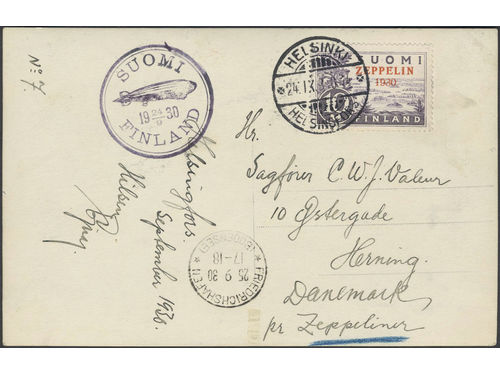 No 7.
SUOMI
19 24/9 30
FINLAND
HELSINKI
24.IX.30
HELSINGFORS
SUOMI
ZEPPELIN
1930
FINLAND
Helsingfors.
September 1930.
Hilsen
Hr.
Sagfører C. W. J. Valeur
10 Østergade
Herning.
Danemark
pr Zeppeliner
FRIEDRICHSHAFEN
25.9.30
17-18
(BODENSEE)